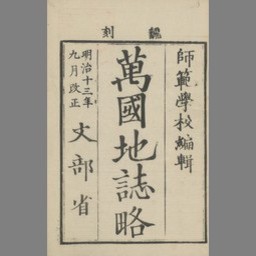 翻刻
師範學校編輯
萬國地誌略
明治十三年
九月改正
文部省